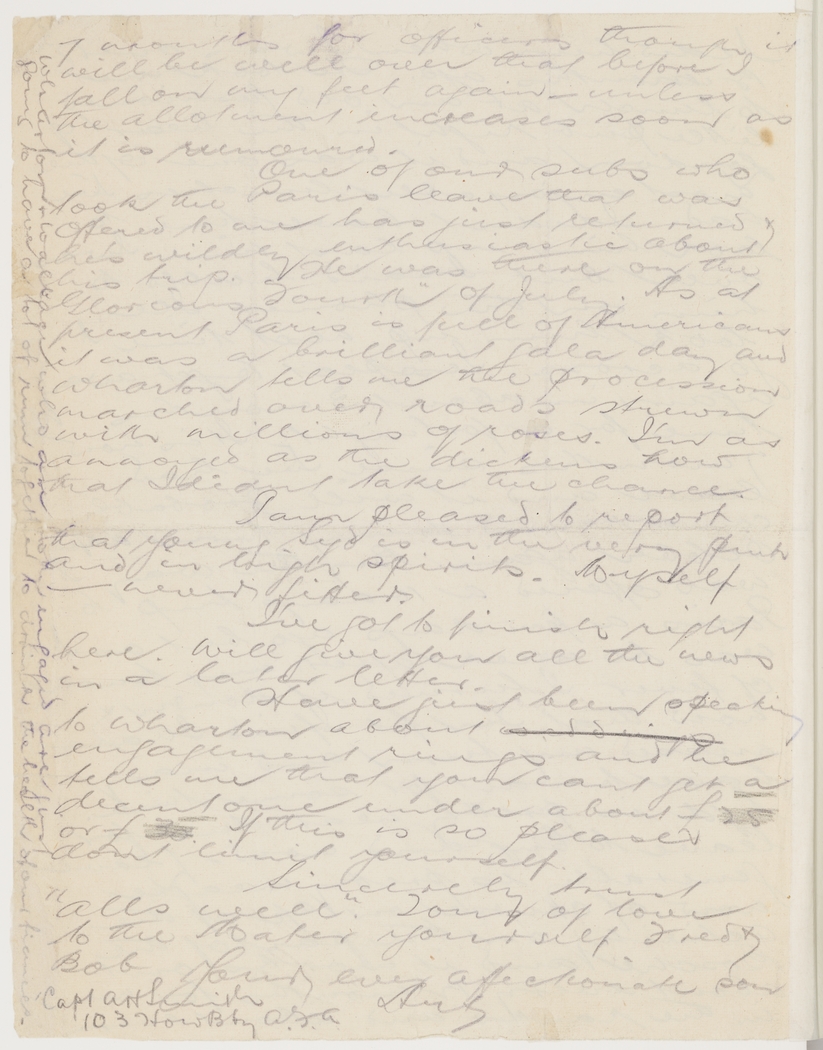 7 months for officers though it
will be well over that before I
fall on my feet again - unless
the allotment increases soon as
it is rumoured.
One of our subs who
took the Paris leave that was
offered to me has just returned &
he's wildly enthusiastic about
his trip. He was there on the
"Glorious Fourth" of July. As at
present Paris is full of Americans
it was a brilliant gala day and
Wharton tells me the procession
marched over roads strewn
with millions of roses. I'm as
annoyed as the dickens now
that I didnt take the chance.
I am pleased to report
that young Syd is in the very pink
and in high spirits. Myself
- never fitter.
I've got to finish right
here. Will give you all the news
in a later letter.
Have just been speaking
to Wharton about weddings
engagement rings and he
tells me that you cant get a
decent one under about £25
or £30 If this is so please
dont limit yourself.
Sincerely trust
"alls well". Tons of love
to the Mater yourself Fred &
Bob Your ever affectionate son
Capt A H Smith
103 How Bty A.F.A
Wharton Walker who are engaged are just
going to have a tot of rum together to drink the health of our fiancees.